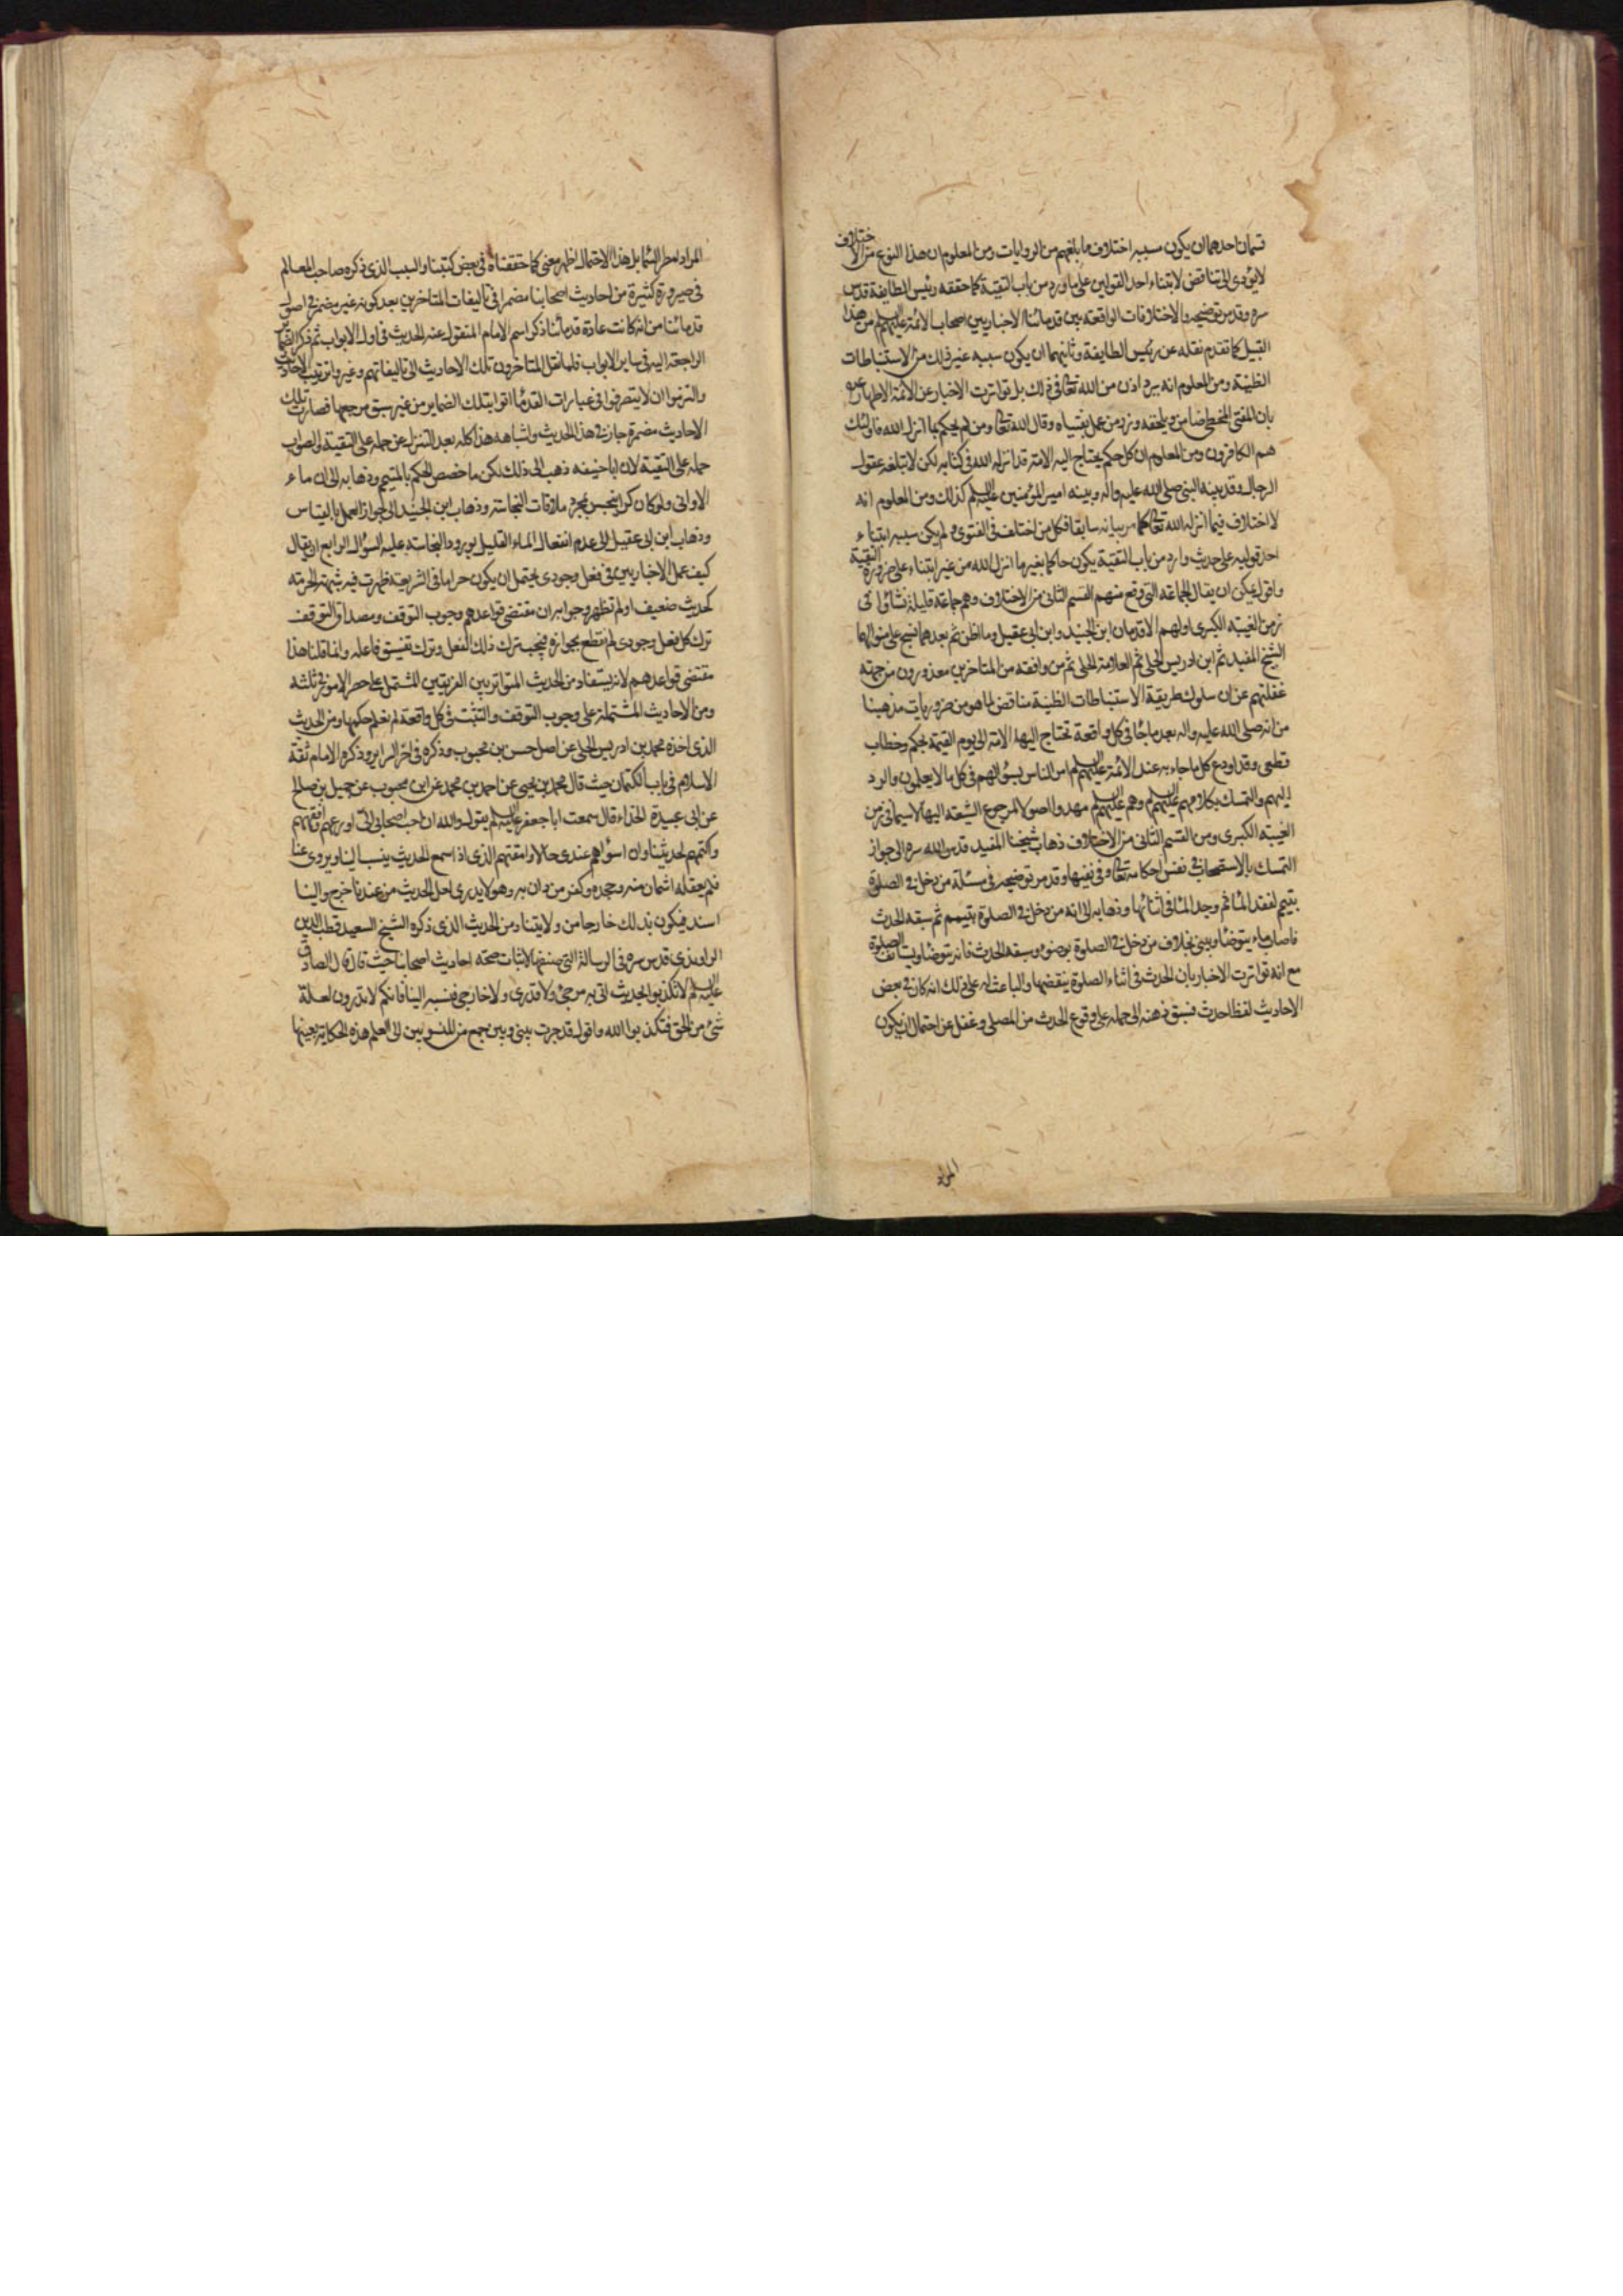 قسمان احدهما ان يكون سببه اختلاف ما بلغهم من الروايات ومن المعلوم ان هذا النوع من الاختلاف
لا يؤدى الى تناقض لابتناء احد القولين على ما ورد من باب التقية كما حققه رئيس الطايفة قدس
سره وقد مر توضيحه والاختلافات الواقعة بين قدمائنا الاخباريين اصحاب الائمة عليهم السلام من هذا
القبيل كما تقدم نقله عن رئيس الطايفة وثانيهما ان يكون سببه غير ذلك من الاستنباطات
الظنية ومن المعلوم انه لم يرد اذن من الله تعالى فى ذلك بل تواترت الاخبار عن الائمة الاطهار ع
بان المفتى المخطى ضامن ويلحقه وزر من عمل بفتياه وقال الله تعالى ومن لم يحكم بما انزل الله فاولئك
هم الكافرون ومن المعلوم ان كل حكم يحتاج اليه الامة قد انزله الله فى كتابه لكن لا تبلغه عقول
الرجال وقد بينه النبى صلى الله عليه واله وبينه امير المؤمنين عليه السلم كذلك ومن المعلوم انه
لا اختلاف فيما انزله الله تعالى كما مر بيانه سابقا فكل من اختلف فى الفتوى ولم يكن سببه ابتناء
احد قوليه على حديث وارد من باب التقية يكون حاكما بغير ما انزل الله من غير ابتناء على ضرورة التقية
واقول يمكن ان يقال الجماعة التى وقع منهم القسم الثانى من الاختلاف وهم جماعة قليلة نشأوا فى
زمن الغيبة الكبرى اولهم الاقدمان ابن الجنيد وابن ابى عقيل وما اظن ثم بعدهما نسج على منوالهما
الشيخ المفيد ثم ابن ادريس الحلى ثم العلامة الحلى ثم من وافقه من المتاخرين معذورون من جهة
غفلتهم عن ان سلوك طريقة الاستنباطات الظنية مناقض لما هو من ضروريات مذهبنا
من انه صلى الله عليه واله بعد ما جاء فى كل واقعة تحتاج اليها الامة الى يوم القيمة بحكم وخطاب
قطعى وقد اودع كل ما جاء به عند الائمة عليهم السلم امر الناس بسؤالهم فى كل ما لا يعلمون والرد
اليهم والتمسك بكلامهم عليهم السلم وهم عليهم السلم مهدوا اصولا لمرجوع الشيعة اليها لا سيما فى زمن
الغيبة الكبرى ومن القسم الثانى من الاختلاف ذهاب شيخنا المفيد قدس الله سره الى جواز
التمسك بالاستصحاب فى نفس احكامه تعالى وفى نفيها وقد مر توضيحه فى مسئلة من دخل فى الصلوة
بتيمم لفقد الماء ثم وجد الماء فى اثنائها وذهابه الى انه من دخل فى الصلوة بتيمم ثم سبقه الحدث
فاصاب ماء يتوضأ ويبنى بخلاف من دخل فى الصلوة بوضوء وسبقه الحدث فانه يتوضأ ويستانف الصلوة
مع انه تواترت الاخبار بان الحدث فى اثناء الصلوة ينقضها والباعث له على ذلك انه كان فى بعض
الاحاديث لفظ احدث فسبق ذهنه الى حمله على وقوع الحدث من المصلى وغفل عن احتمال ان يكون
المراد
المراد امطر السماء بل هذا الاحتمال اظهر معنى كما حققناه فى بعض كتبنا والسبب الذى ذكره صاحب المعالم
فى صيرورة كثيرة من احاديث اصحابنا مضمرا فى تاليفات المتاخرين بعد كونه غير مضمر فى اصول
قدمائنا من انه كانت عادة قدمائنا ذكر اسم الامام المنقول عنه الحديث فى اول الابواب ثم ذكر الضمائر
الراجعة اليه فى ساير الابواب فلما نقل المتاخرون تلك الاحاديث الى تاليفاتهم وغيروا ترتيب الاحاديث
والتزموا ان لا يتصرفوا فى عبارات القدماء اتوا بتلك الضماير من غير سبق مرجعها فصارت تلك
الاحاديث مضمرة جاز فى هذا الحديث واشباهه هذا كله بعد التنزل عن حمله على التقية والصواب
حمله على التقية لان ابا حنيفه ذهب الى ذلك لكن ما خصص الحكم بالمتيمم وذهابه الى ان ماء
الاوانى ولو كان كرا ينجس بمجرد ملاقات النجاسة وذهاب ابن الجنيد الى جواز العمل بالقياس
وذهاب ابن ابى عقيل الى عدم انفعال الماء القليل بورود النجاسة عليه السؤال الرابع ان يقال
كيف عمل الاخباريين فى فعل وجودى يحتمل ان يكون حراما فى الشريعة ظهرت فيه شبهة الحرمة
كحديث ضعيف او لم تظهر وجوابه ان مقتضى قواعدهم وجوب التوقف ومصداق التوقف
ترك كل فعل وجودى لم نقطع بجوازه فيجب ترك ذلك الفعل وترك تفسيق فاعله وانما قلنا هذا
مقتضى قواعدهم لانه يستفاد من الحديث المتواتر بين الفريقين المشتمل على حصر الامور فى ثلثة
ومن الاحاديث المشتملة على وجوب التوقف والتثبت فى كل واقعة لم نعلم حكمها ومن الحديث
الذى اخذه محمد بن ادريس الحلى عن اصل حسن بن محبوب وذكره فى اخر السراير وذكره الامام ثقة
الاسلام فى باب الكتمان حيث قال محمد بن يحيى عن احمد بن محمد عن ابن محبوب عن جميل بن صالح
عن ابى عبيدة الحذاء قال سمعت ابا جعفر عليه السلم يقول والله ان احب اصحابى الىّ اورعهم وافقههم
واكتمهم لحديثنا وان اسوأهم عندى حالا وامقتهم الذى اذا سمع الحديث ينسب الينا ويروى عنا
فلم يعقله اشمان منه وجحده وكفر من دان به وهو لا يدرى لعل الحديث من عندنا خرج والينا
اسند فيكون بذلك خارجا من ولايتنا ومن الحديث الذى ذكره الشيخ السعيد قطب الدين
الراوندى قدس سره فى الرسالة التى صنفها لاثبات صحة احاديث اصحابنا حيث قال قال الصادق
عليه السلم لا تكذبوا الحديث اتى به مرجئ ولا قدرى ولا خارجى فنسبه الينا فانكم لا تدرون لعله
شئ من الحق فتكذبوا الله واقول قد جرت بينى وبين جمع من المنسوبين الى العلم هذه الحكاية بعينها